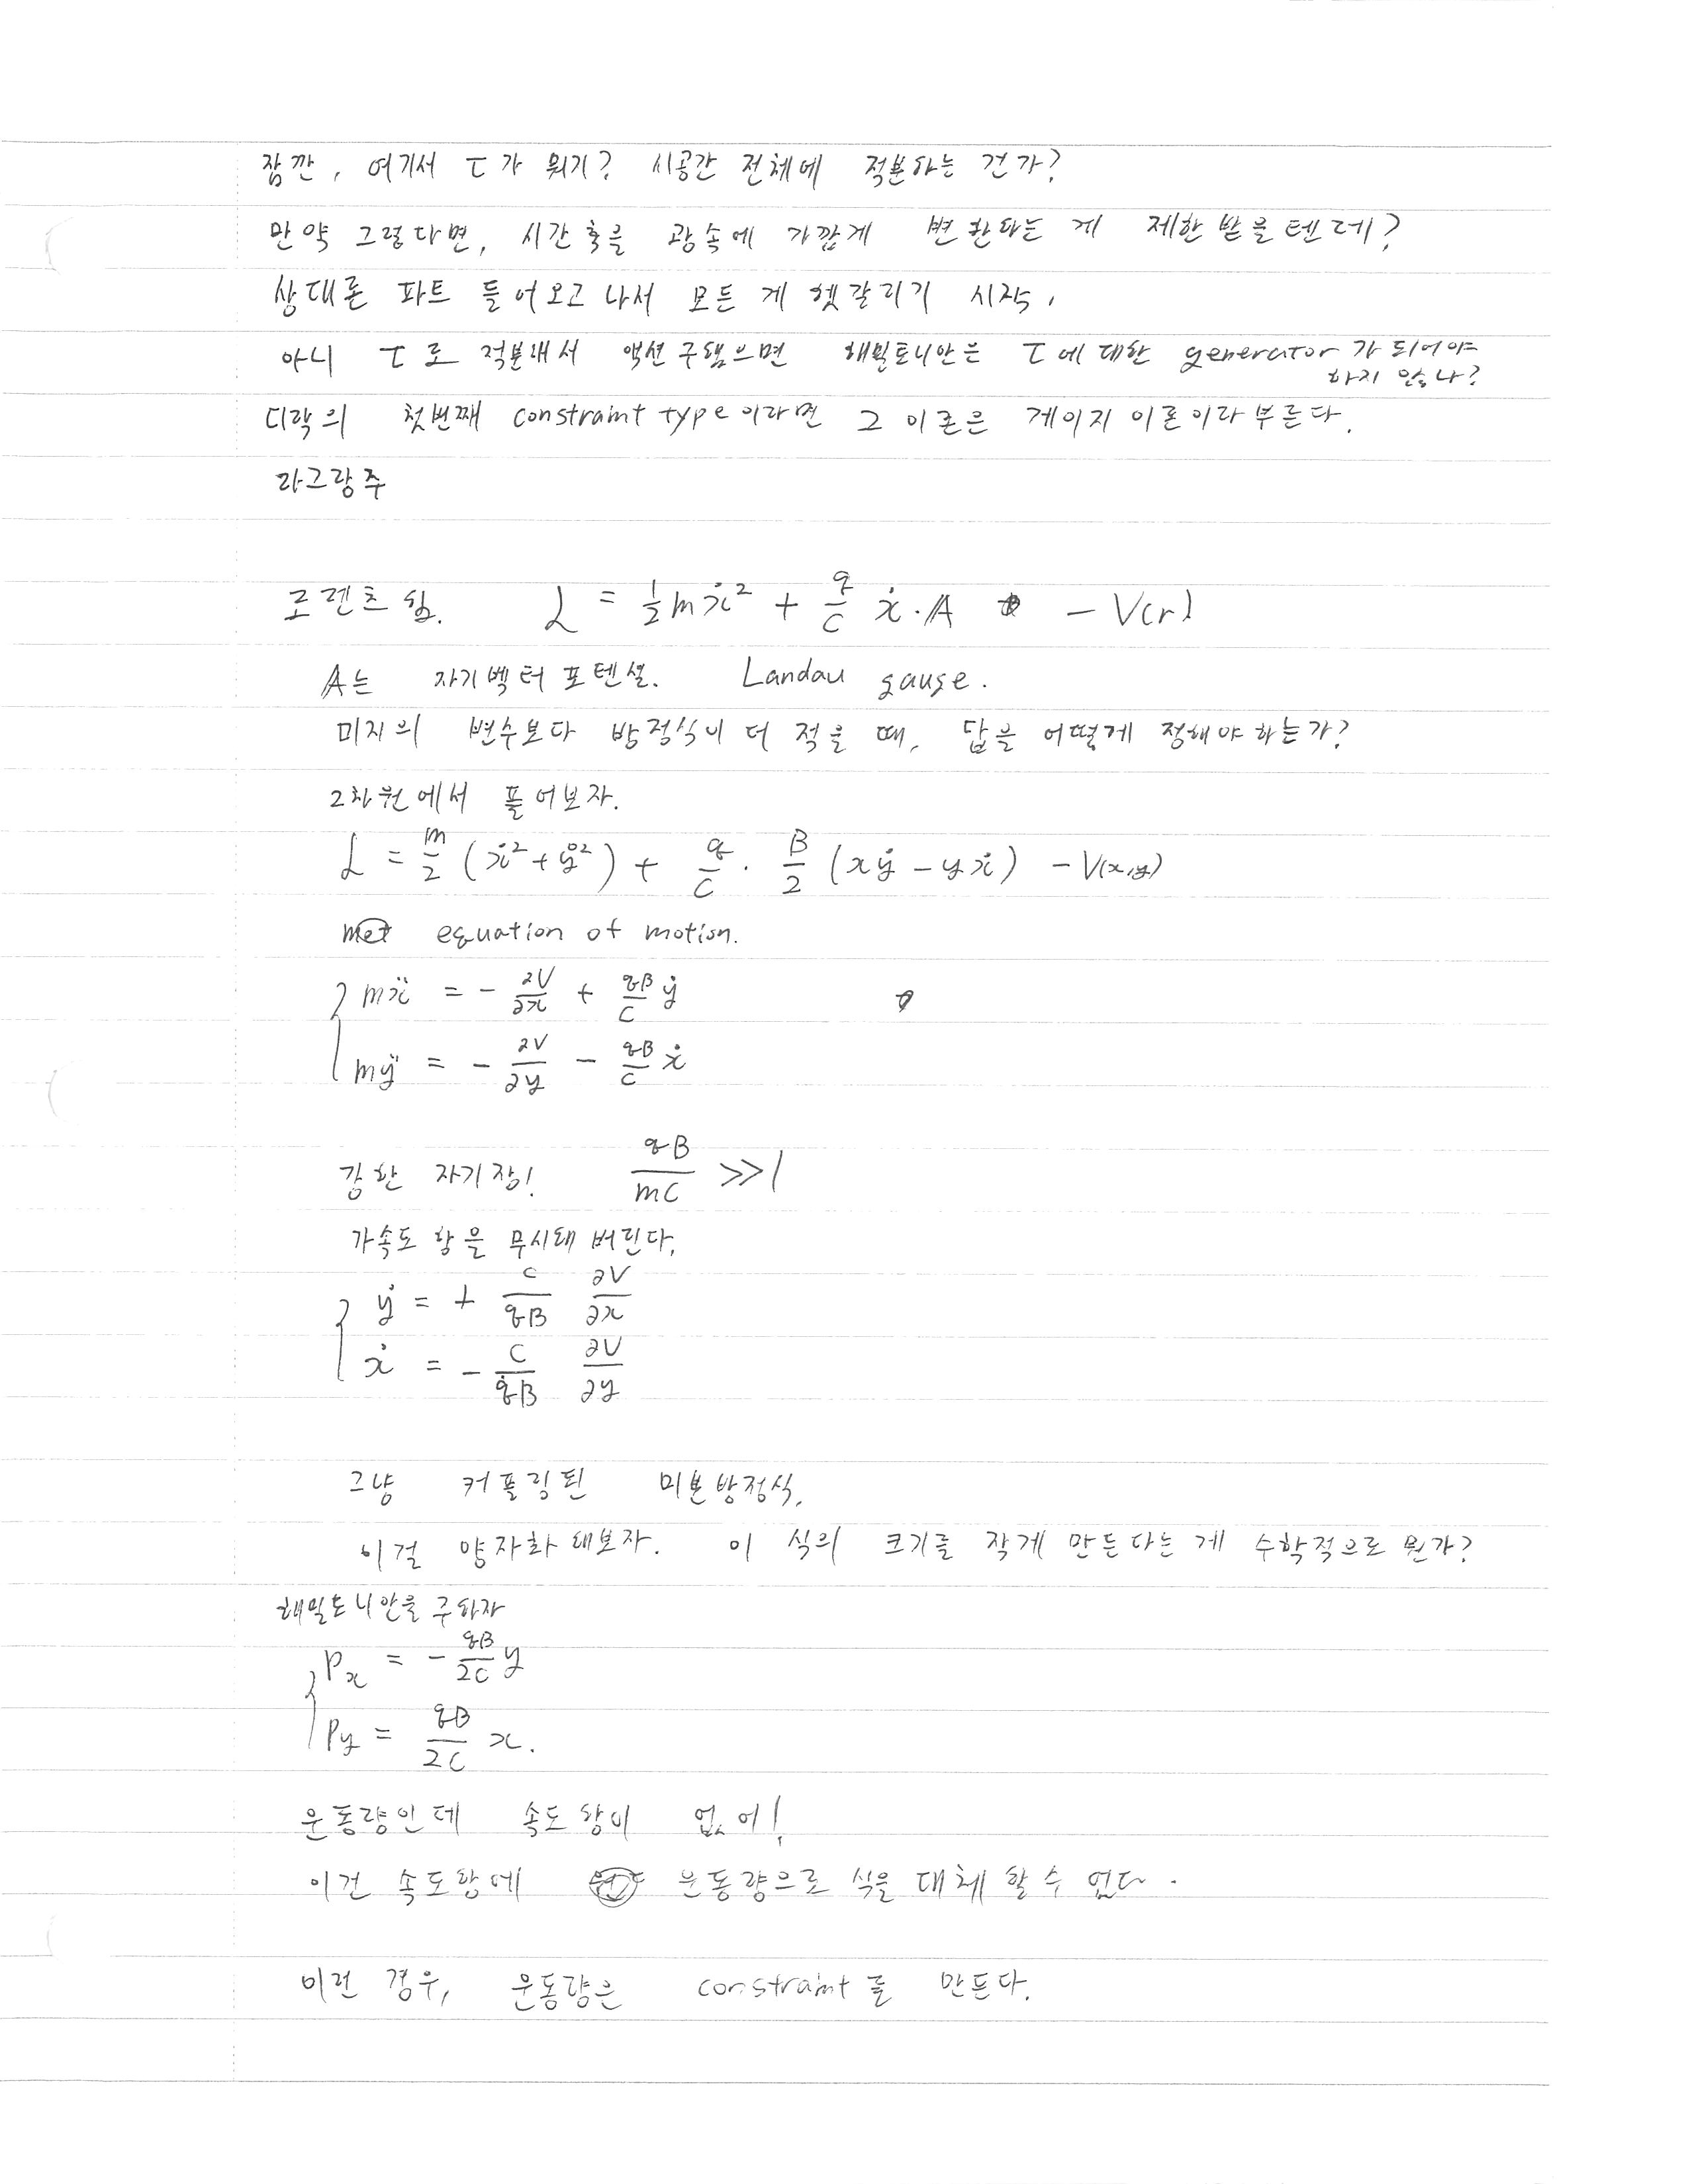 잠깐, 여기서 τ가 뭐지? 시공간 전체에 적분하는 건가?
만약 그렇다면, 시간축을 광속에 가깝게 변환하는 게 제한 받을텐데?
상대론 파트 들어오고 나서 모든 게 헷갈리기 시작.
아니 τ로 적분해서 액션 구했으면 해밀토니안은 τ에 대한 generator가 되어야
하지 않나?
디락의 첫번째 constraint type이라면 그 이론은 게이지 이론이라 부른다.
라그랑주
로렌츠 힘. L = ½mẋ² + q/c ẋ·A - V(r)
A는 자기벡터 포텐셜. Landau gauge.
미지의 변수보다 방정식이 더 적을 때, 답을 어떻게 정해야하는가?
2차원에서 풀어보자.
L = m/2 (ẋ² + ẏ²) + q/c · B/2 (xẏ - yẋ) - V(x,y)
equation of motion.
mẍ = - ∂V/∂x + qB/c ẏ
mÿ = - ∂V/∂y - qB/c ẋ
강한 자기장! qB/mC >> 1
가속도 항을 무시해 버린다.
ẏ = + c/qB ∂V/∂x
ẋ = - c/qB ∂V/∂y
그냥 커플링된 미분방정식.
이걸 양자화 해보자. 이 식의 크기를 작게 만든다는 게 수학적으로 뭔가?
해밀토니안을 구하자
Px = - qB/2C y
Py = qB/2C x.
운동량인데 속도항이 없어!
이건 속도항에 운동량으로 식을 대체 할 수 없다.
이런 경우, 운동량은 constraint를 만든다.